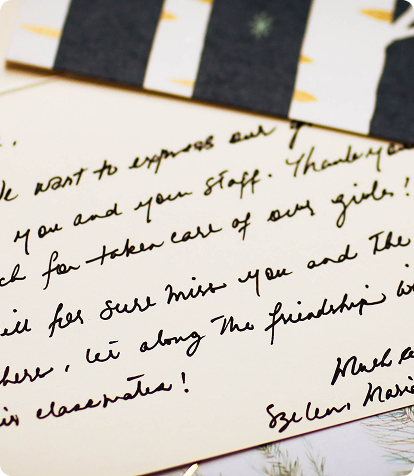 We want to express our
you and your staff. Thank you
ch for taken care of our girls!
ill for sure miss you and The
here, let along The friendship w
is classmates!
Much
Szelen, Maria